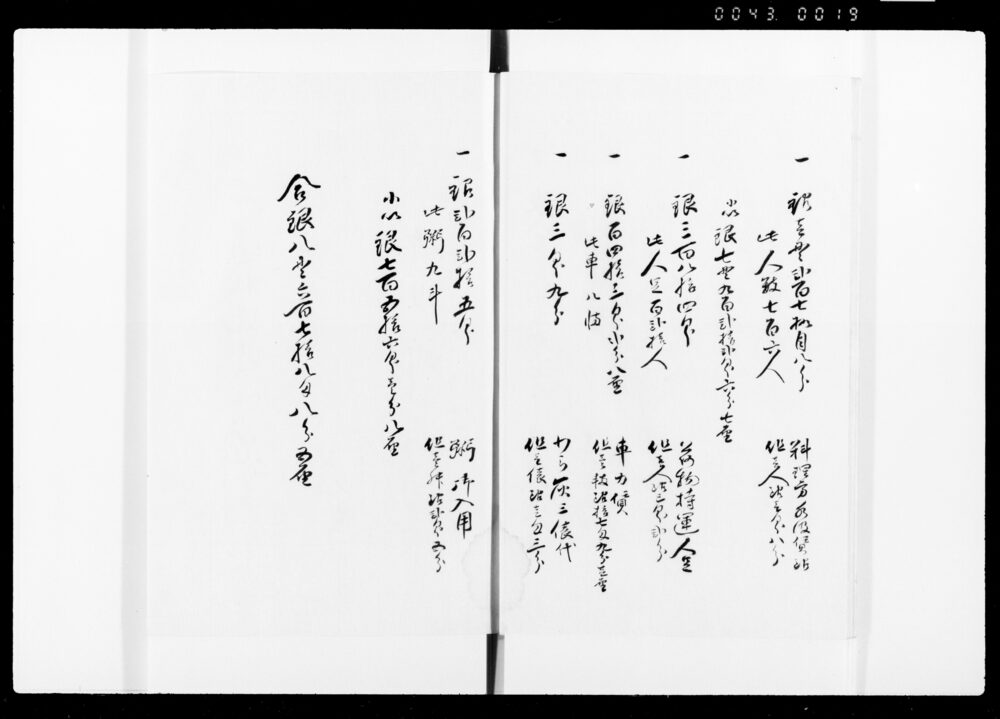 0043. 0019
一 銀壱貫弐百七拾目八分 料理方水汲賃銀
此人数七百六人 但壱人ニ付壱匁八分
小以銀七貫九百弐拾弐匁六分七厘
一 銀三百八拾四匁 荷物持運人足
此人足百弐拾人 但壱人ニ付三匁弐分
一 銀百四拾三匁弐分八厘 車力賃
此車八 但壱 ニ付拾七匁九分壱厘
一 銀三匁九分 わら灰三俵代
但壱俵ニ付壱匁三分
一 銀弐百弐拾五匁 粥御入用
此粥九斗 但壱升ニ付弐匁五分
小以銀七百五拾六匁壱分八厘
合銀八貫六百七拾八匁八分五厘